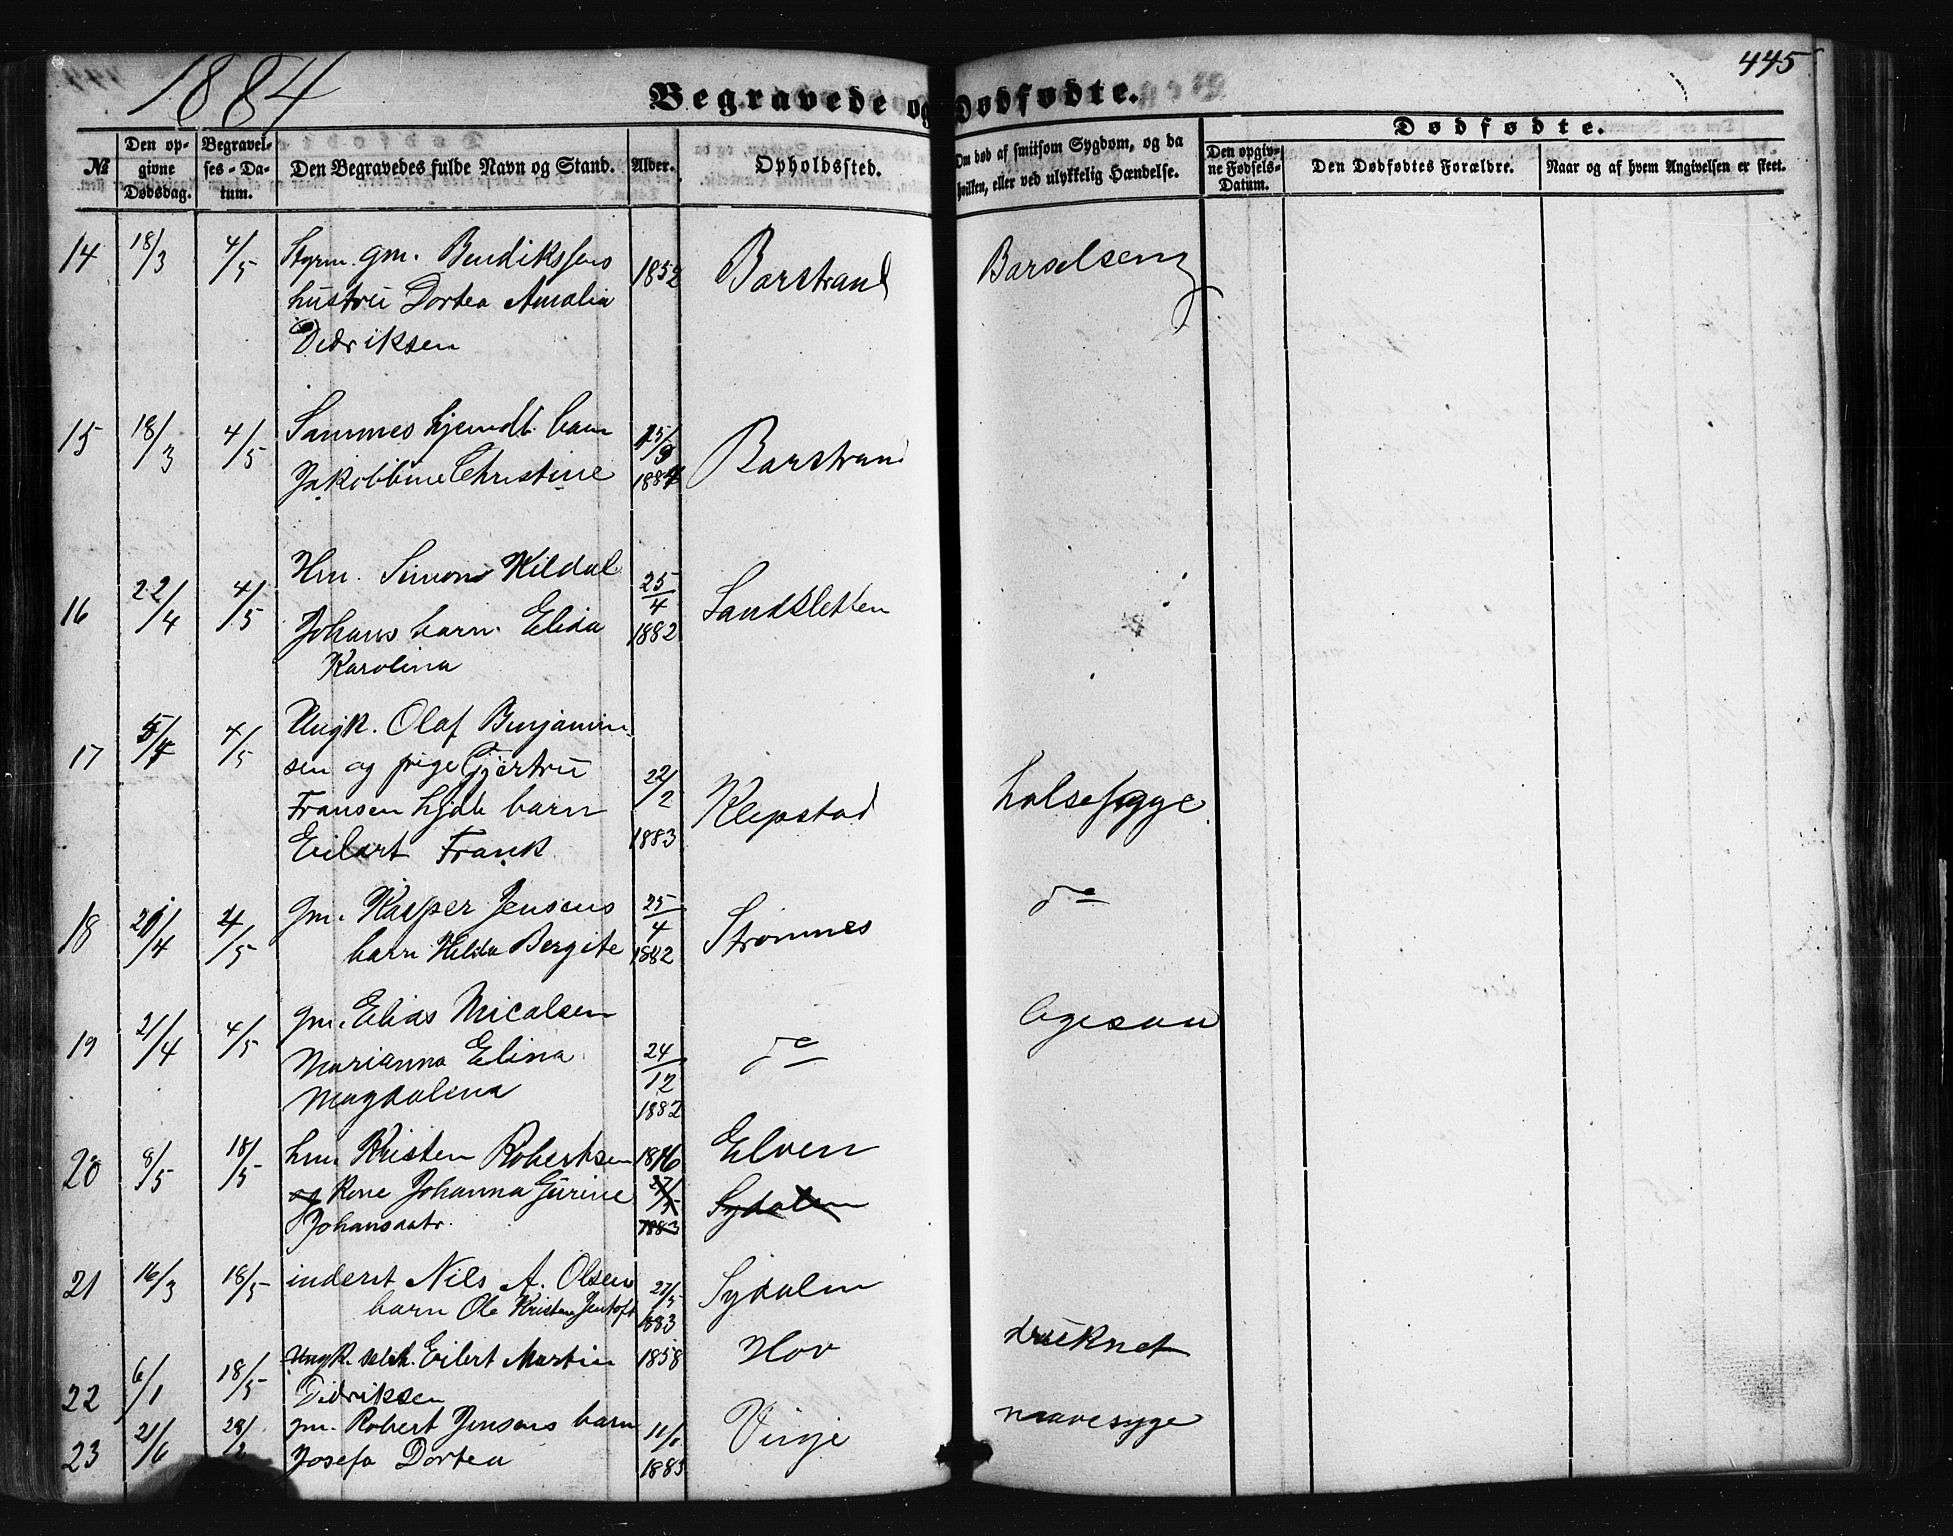 1884
445
Begravede og Dødfødte.
№
Den opgivne Dødsdag.
Begravelses-Datum.
Den Begravedes fulde Navn og Stand.
Alder.
Opholdssted.
Om død af smitsom Sygdom, og da hvilken, eller ved ulykkelig Hændelse.
Dødfødte.
Den opgivne Fødsels-Datum.
Den Dødfødtes Forældre.
Naar og af hvem Angivelsen er skeet.
14 18/3 4/5 Styrm. gm. Bendiksens 1852 Barstrand Barselseng
hustru Dortea Amalia
Didriksen
15 18/3 4/5 Sammes hjemdt. barn 15/3 Barstrand
Jakobbine Christine 1884
16 22/4 4/5 Hm. Simon Kildal 25/4 Sandsletten
Johans barn. Elida 1882
Karolina
17 5/4 4/5 Ungk. Olaf Benjamin-
sen og pige Gjertru 22/2
Fransen hjdt barn Klepstad halsesyge
Eilert Frank 1883
18 21/4 4/5 gm. Kasper Jensens 25/4 Strømnes do
barn Hilda Bergite 1882
19 21/4 4/5 gm. Elias Micalsen
Marianna Elina 24/12 do
Magdalena 1882
20 8/5 18/5 hm Kristen Robertsen 1816 Elven
og kone Johanna Gurine 27/5 Sydalen
Johansdatr. 1883
21 16/3 18/5 inderst Nils A. Olsen 27/5 Sydalen
barn Ole Kristen Jentoft 1883
22 6/1 18/5 Ungk. Eilert Martin 1858 Hov druknet
Didriksen
23 21/6 gm. Robert Jensens barn 11/1 Virje mavesyge
Josefa Dortea 1883